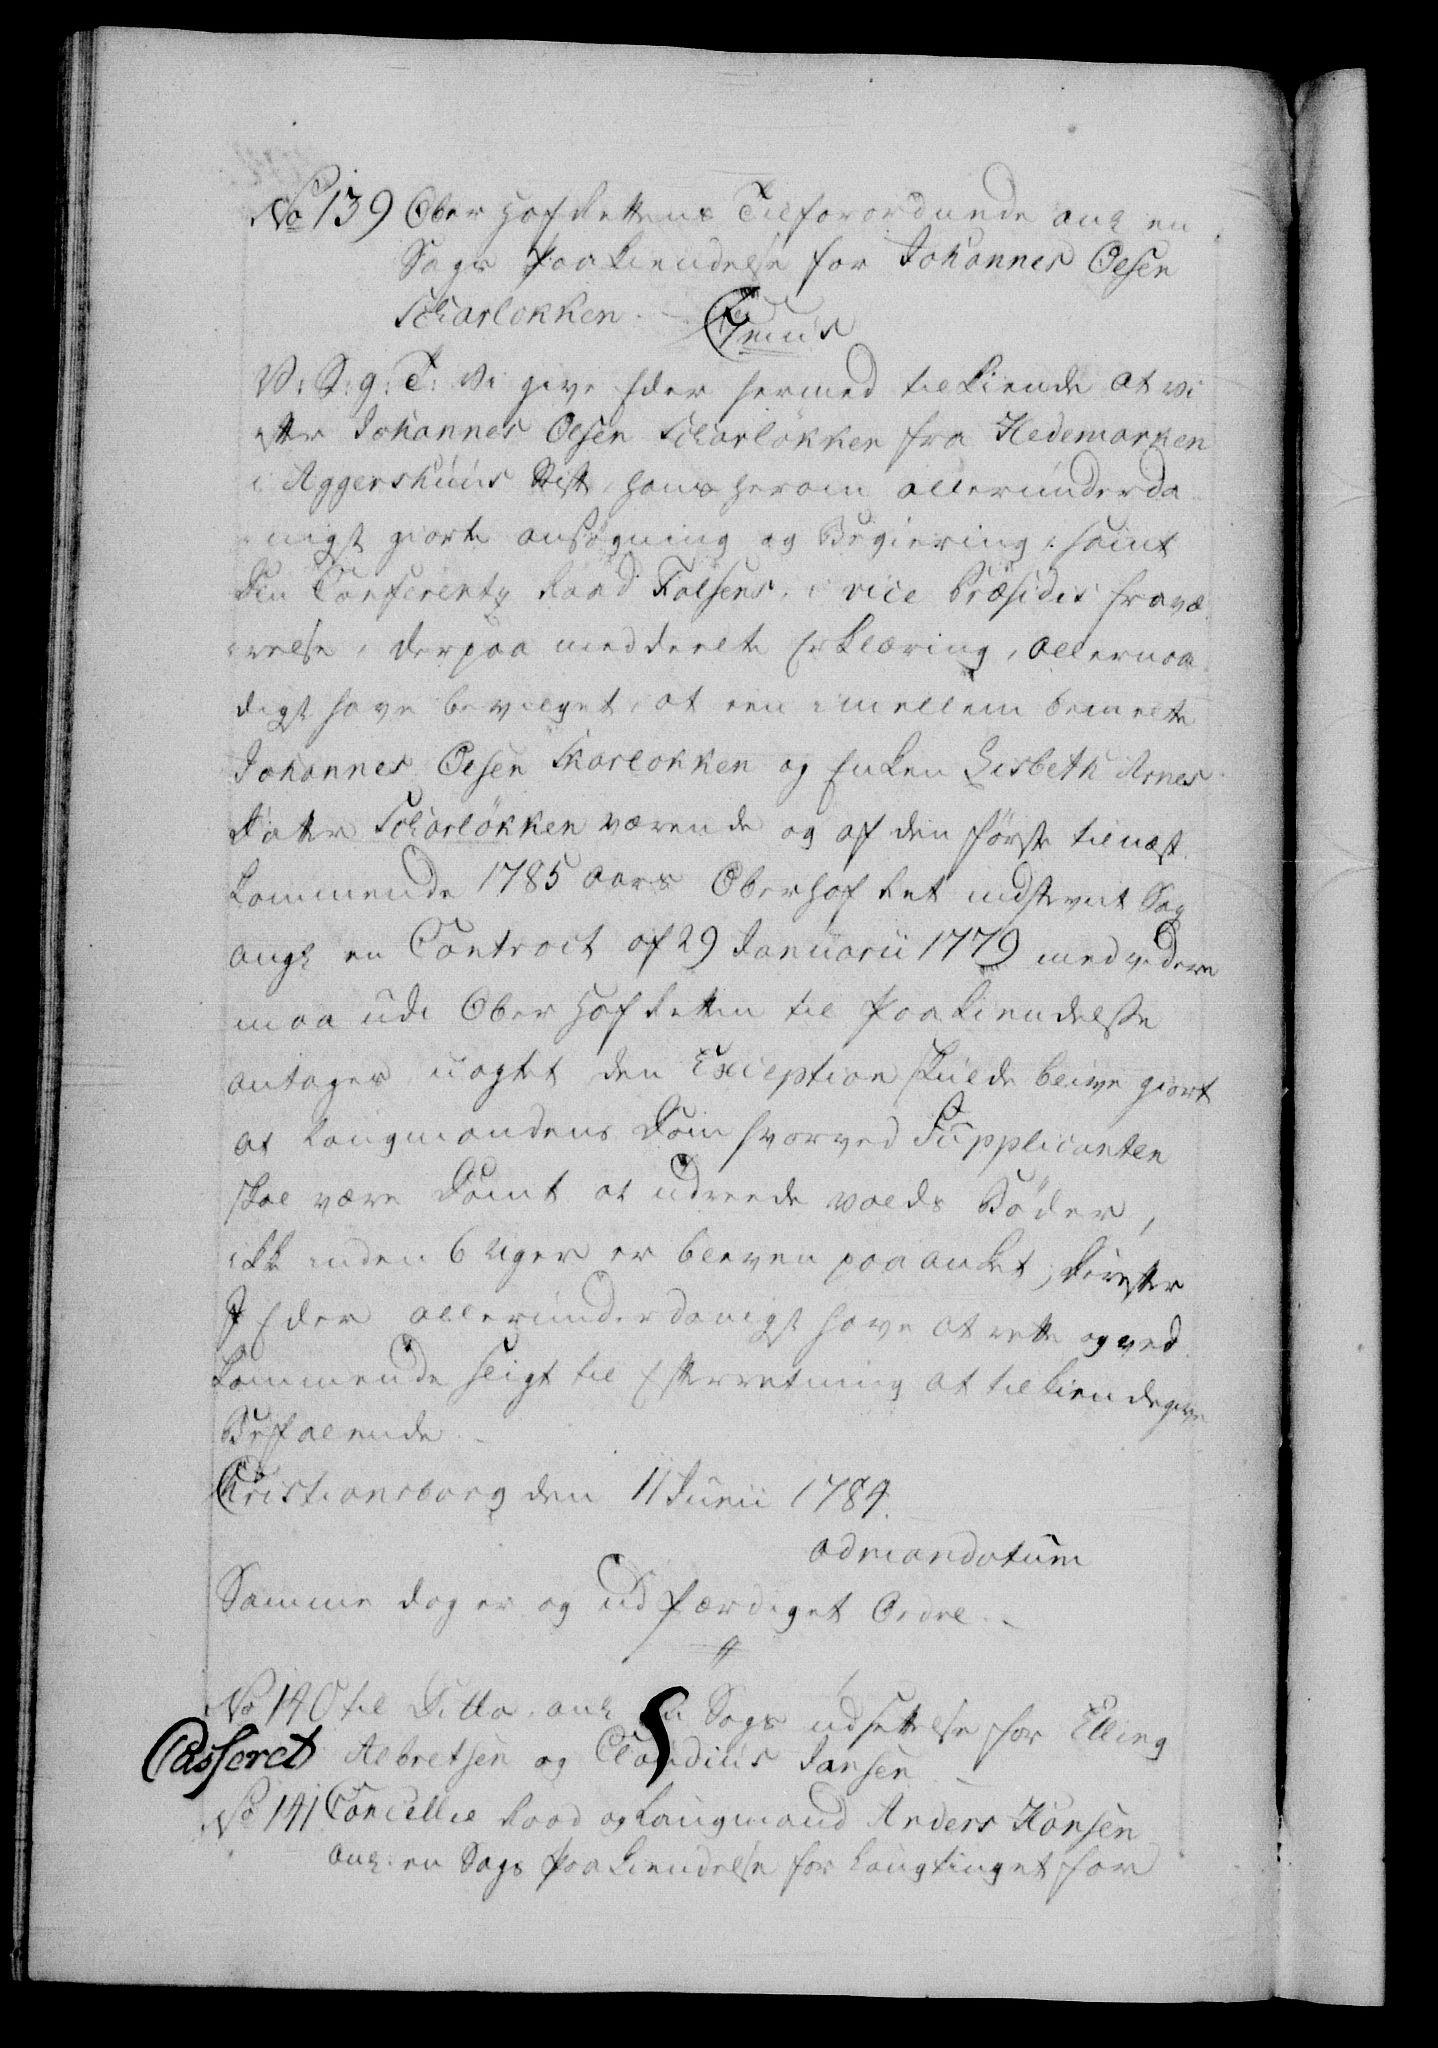 No 139 Ober Hof Rettens Tilforordnede ang en
Sags Paakiendelse for Johannes Olsen
Scharlokken. Gratis
V: S: g: T: Vi give Eder hermed tilkiende at vi
efter Johannes Olsen Scharløkken fra Hedemarken
i Aggershuus Stift, hans herom allerunderda
nigst giorte ansøgning og Begiering, samt
Din Conferentz Raad Falsens, i vice Præsidis fravæ
relse, derpaa meddeelte Erklæring, allernaa
digst have bevilget, at een imellem bemelte
Johannes Olsen Skarlokken og Enken Lisbeth Arnes
Datter Scharløkken værende og af den første til næst
kommende 1785 Aars Oberhof Ret indstevnt Sag
angl en Contract af 29 Januarii 1779 med videre
maa udi Ober Hof Retten til Paakiendelse
antages, uagtet den Exception skulde blive giort
at Laugmandens Dom hvorved Supplicanten
skal være Dømt at udreede Volds Bøder,
ikke inden 6 Uger er bleven paaanket; Derefter
I Eder allerunderdanigst have at rette og ved
kommende sligt til Efterretning at tilkiendegive
Befalende.
Christiansborg den 11 Junii 1784.
ad mandatum
Samme dag er og udfærdiget Ordre.
No 140 til Ditto, angl en Sags udsettelse for Elling
Casseret Albretsen og Claudius Jansen
No 141 Cancellie Raad og Laugmand Anders Hansen
angl: en Sags Paakiendelse for Laugtinget for